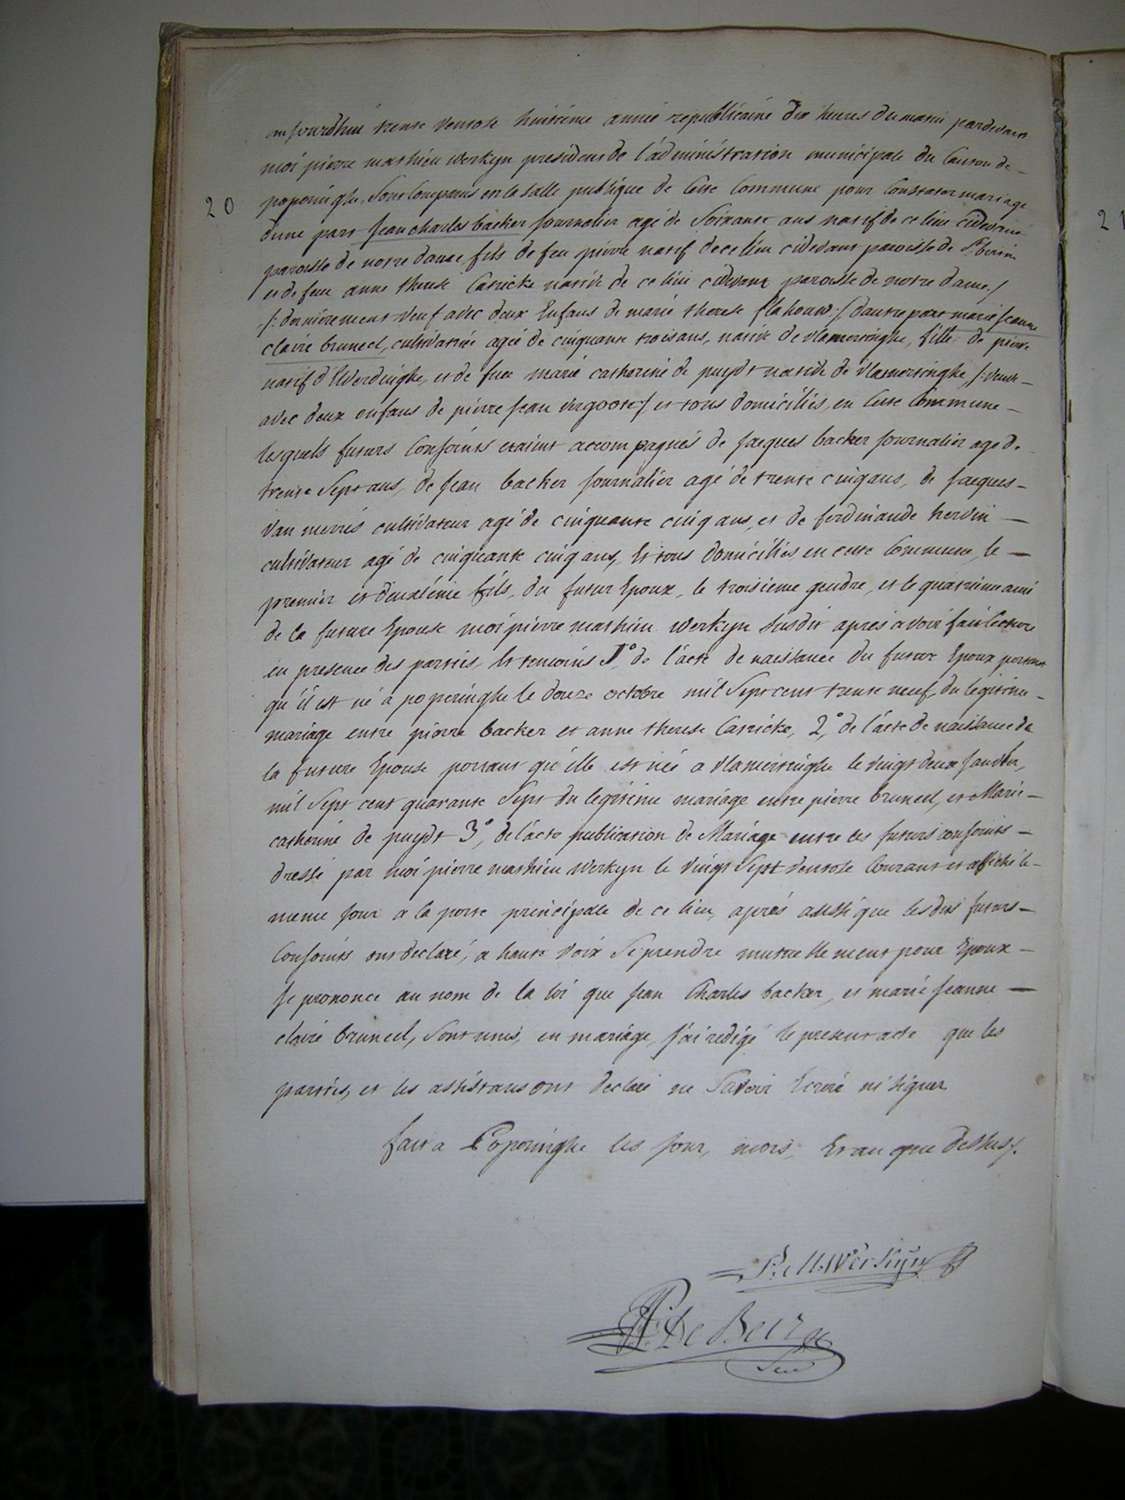 aujourdhui trente ventose huitiéme année republicaine dix heures du matin pardevant
moi pierre mathieu werkyn president de l'administration municipale du Canton de
poperinghe, sont comparus en la salle publique de cette Commune pour Constater mariage
20
21
dune part Jean charles backer journalier agé de Soixante ans natif de ce lieu cidevant
paroisse de notre dame, fils de feu pierre natif de ce lieu cidevant paroisse de St bertin
et de feu anne therese Carricke native de ce lieu cidevant paroisse de notre dame /
/: derniérement veuf avec deux Enfans de marie therese flahouw :/ dautre part marie jeanne
claire bruneel, cultivatrice agée de cinquante trois ans, native de vlamertinghe, fille de pierre
natif d'Werdinghe, et de feue marie catherine de puydt native de vlamertinghe, /: veuve
avec deux enfans de pierre jean / et tous domiciliés en Cette Commune
lesquels futurs Conjoints etaient accompagnés de jacques backer journalier agé de
trente Sept ans, de jean backer journalier agé de trente cinq ans, de jacques
van merris cultivateur agé de cinquante cinq ans, et de ferdinande
cultivateur agé de cinquante cinq ans, Et tous domiciliés en cette Commune, le
premier et deuxiéme fils, du futur Epoux, le troisieme gendre, et le quatrieme ami
de la future Epouse moi pierre mathieu werkyn susdit aprés avoir fait lecture
en presence des parties, Et temoins 1° de l'acte de naissance du futur Epoux portant
qu'il est né a poperinghe le douze octobre mil Sept cent trente neuf, du legitime
mariage entre pierre backer et anne therese Carricke, 2° de l'acte de naissance de
la future Epouse portant qu'elle est née a vlamertinghe le vingt deux
mil Sept cent quarante Sept du legitime mariage entre pierre bruneel, et Marie
catherine de puydt 3° de l'acte publication de Mariage entre les futurs conjoints
dressé par moi pierre mathieu werkyn le vingt Sept ventose Courant et affiché le
meme jour a la porte principale de ce lieu, aprés aussi que lesdits futurs
Conjoints ont declaré, a haute voix Se prendre mutuellement pour Epoux
je prononce au nom de la loi que jean Charles backer, et marie jeanne
claire bruneel, sont unis, en mariage, j'ai redigé le present acte que les
parties, et les assistans ont declaré ne Savoir Ecrire ni signer
fait a Poperinghe les jour, mois, Et an que dessus /.
P: M: Werkyn
De Beir